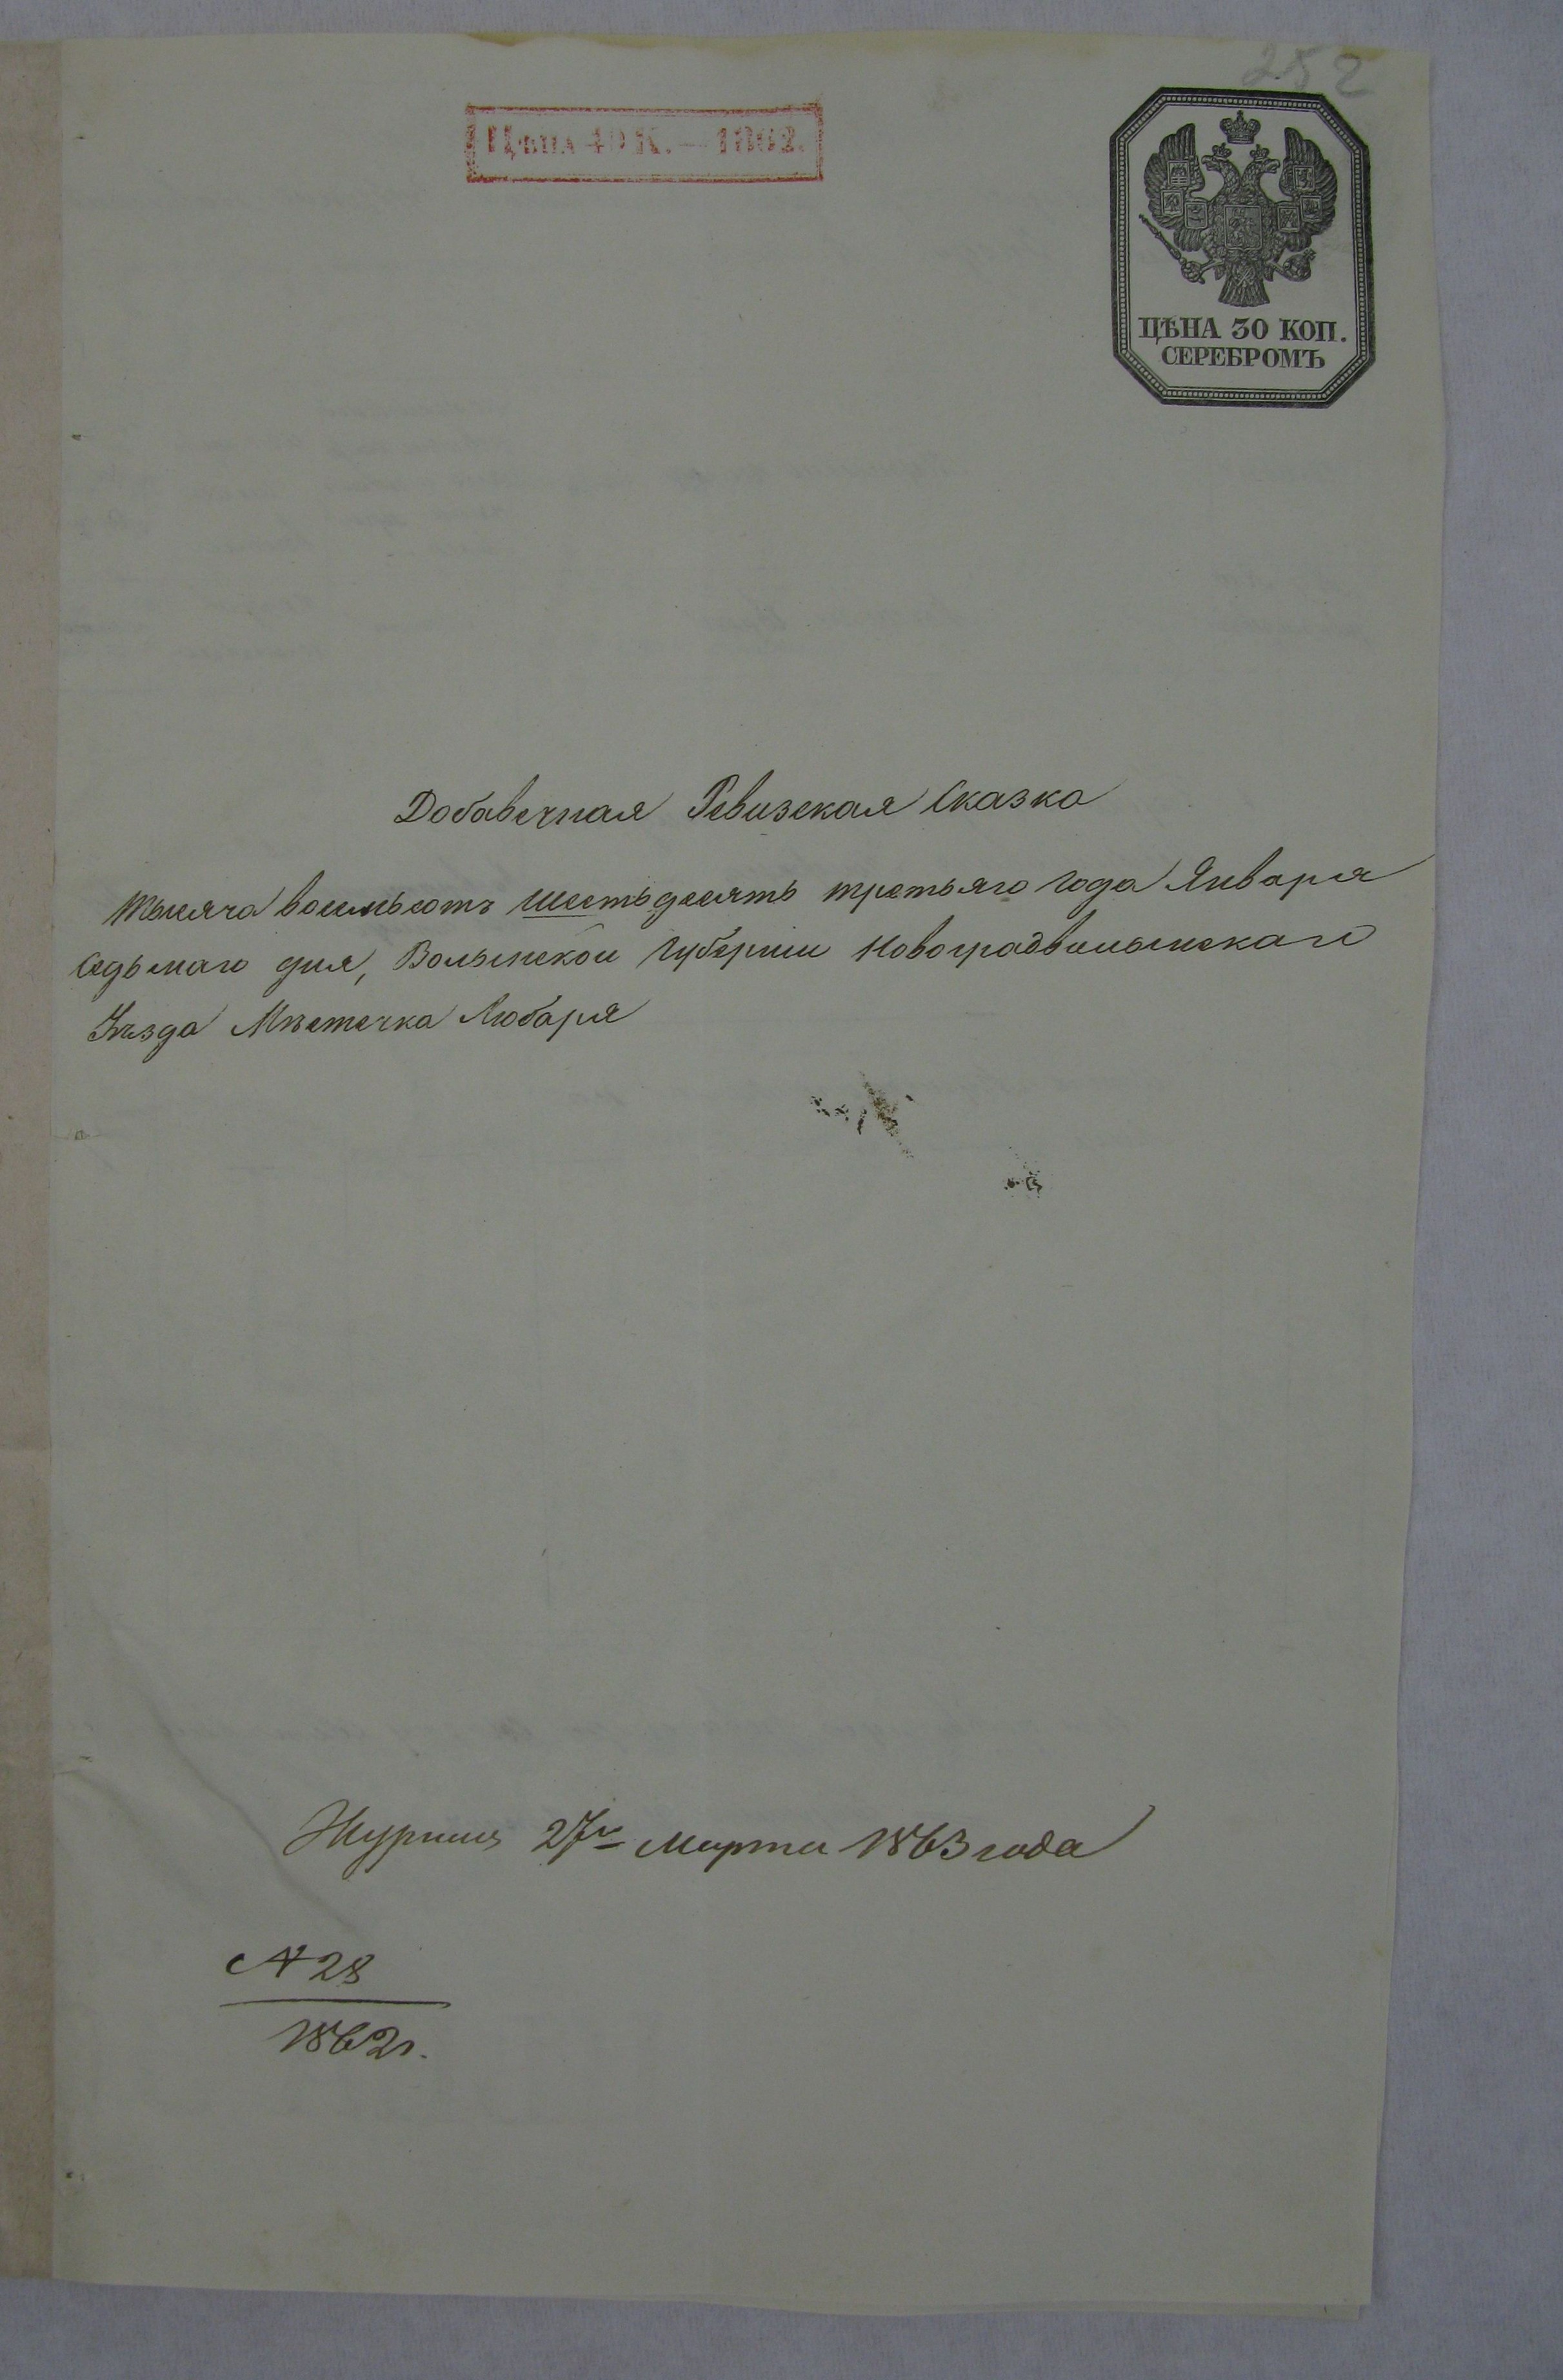 252
Цѣна 40 К. — 1862.
ЦѢНА 30 КОП.
СЕРЕБРОМЪ
Добавечная Ревизская Сказка
тысяча восемьсотъ шестьдесятъ третьяго года Января
седьмаго дня, Волынской Губерніи Новоградволынскаго
Уѣзда Мѣстечка Любаря
27го марта 1863 года
№ 28
1862 г.